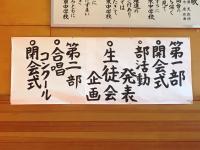 第一部
◎開会式
◎部活動
発表
◎生徒会
企画
第二部
◎合唱
コンクール
◎閉会式